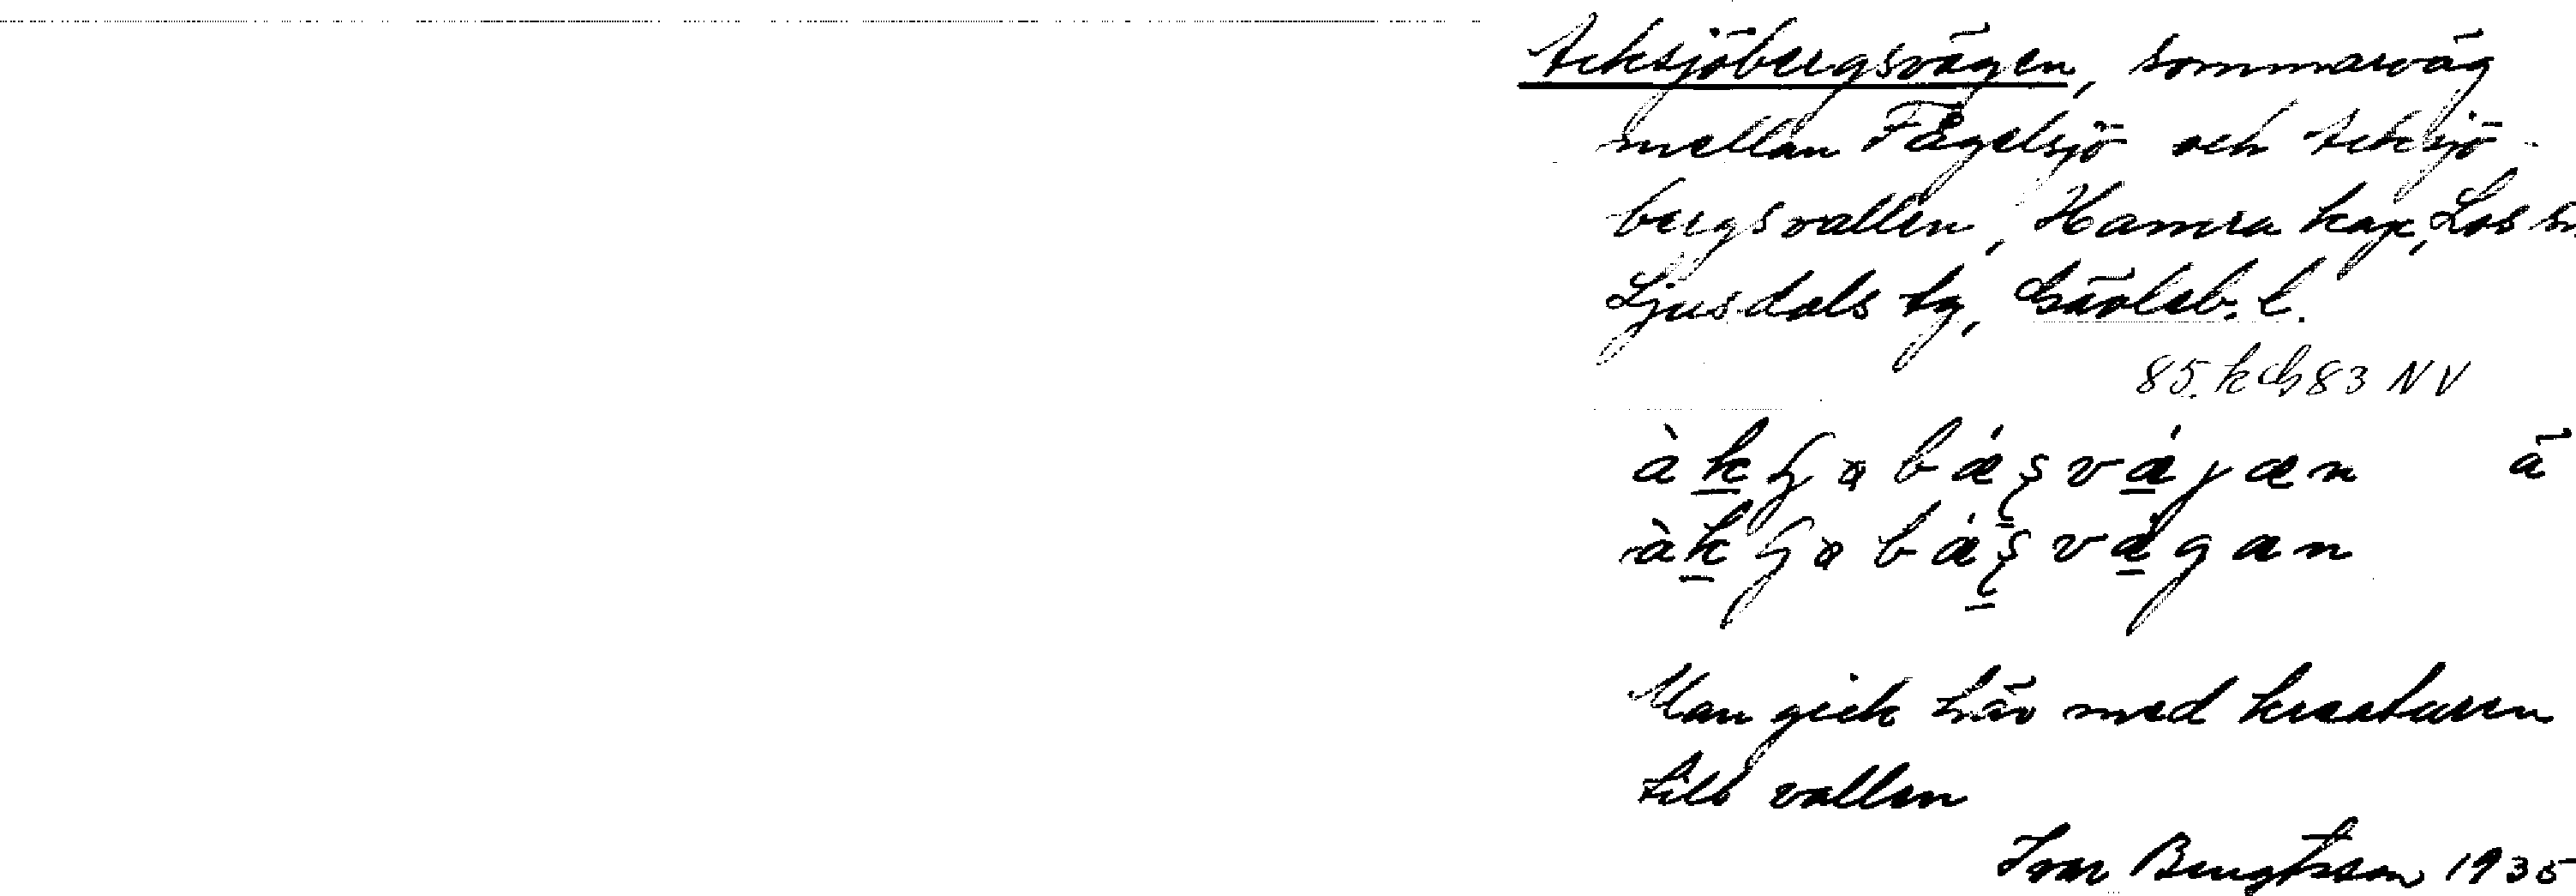 Acksjöbergsvägen, sommarväg
mellan Fågelsjö och Acksjö-
bergsvallen, Hamra kap, Los sn
Ljusdals tg, Gävleb. l.
85. k G 83 NV
Man gick här med kreaturen
till vallen
Ivar Bengtsson 1935